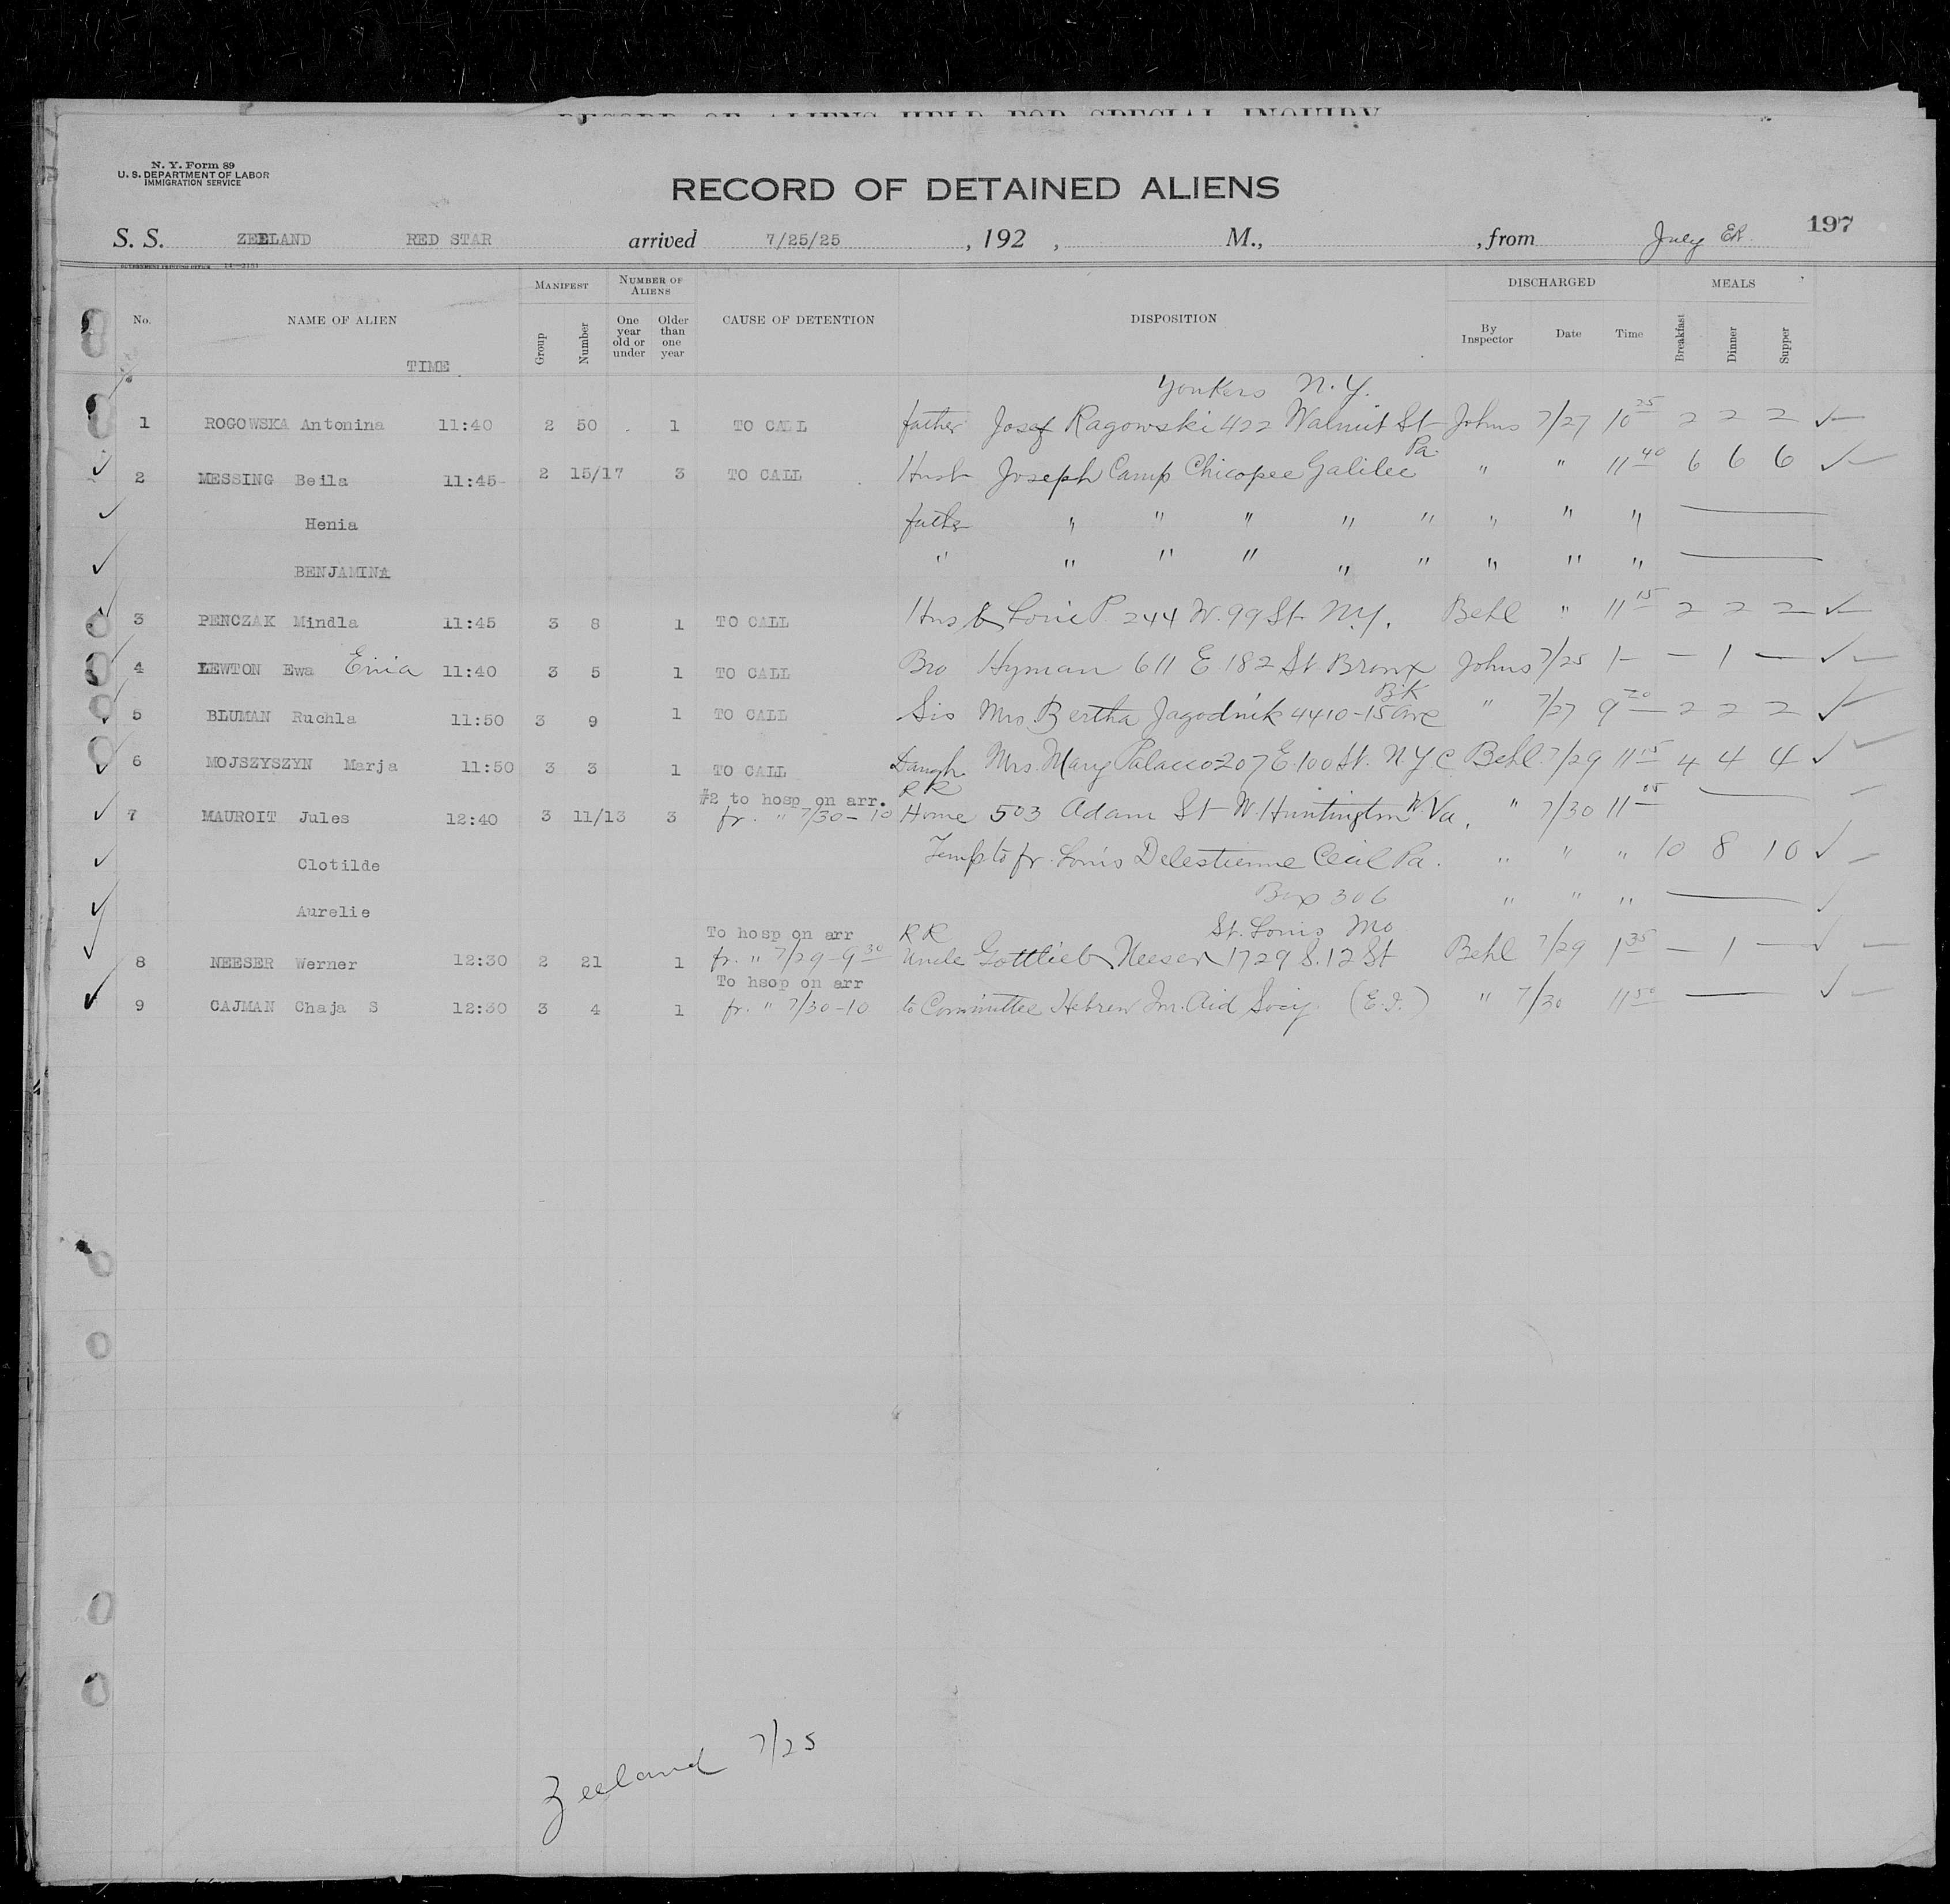 RECORD OF ALIENS HELD FOR SPECIAL INQUIRY
N. Y. Form 89
U. S. DEPARTMENT OF LABOR
IMMIGRATION SERVICE
RECORD OF DETAINED ALIENS
197
S. S. ZEELAND RED STAR arrived 7/25/25, 192 , M., , from July ER
GOVERNMENT PRINTING OFFICE
No. NAME OF ALIEN TIME MANIFEST Group Number NUMBER OF ALIENS One year old or under Older than one year CAUSE OF DETENTION DISPOSITION DISCHARGED By Inspector Date Time MEALS Breakfast Dinner Supper
Yonkers N.Y.
1 ROGOWSKA Antonina 11:40 2 50 1 TO CALL father Josef Ragowski 422 Walnut St Johns 7/27 10 25 2 2 2
Pa
2 MESSING Beila 11:45- 2 15/17 3 TO CALL Husb Joseph Camp Chicopee Galilee " " 11 40 6 6 6
Henia father " " " " " " " "
BENJAMINA " " " " " " " " "
3 PENCZAK Mindla 11:45 3 8 1 TO CALL Husb Louie P. 244 W. 99 St N.Y. Behl " 11 15 2 2 2
4 LEWTON Ewa Enia 11:40 3 5 1 TO CALL Bro Hyman 611 E 182 St Bronx Johns 7/25 1— — 1 —
BK
5 BLUMAN Ruchla 11:50 3 9 1 TO CALL Sis Mrs Bertha Jagodnik 4410-15 ave " 7/27 9 20 2 2 2
6 MOJSZYSZYN Marja 11:50 3 3 1 TO CALL Daugh Mrs. Mary Palacco 207 E. 100 St. N.Y.C Behl 7/29 11 15 4 4 4
#2 to hosp on arr. RR
7 MAUROIT Jules 12:40 3 11/13 3 fr. " 7/30-10 Home 503 Adam St W. Huntington W. Va. " 7/30 11 05
Clotilde Temp to fr. Louis Delestienne Cecil Pa. " " " 10 8 10
Aurelie Box 306 " " "
To hosp on arr RR St. Louis Mo
8 NEESER Werner 12:30 2 21 1 fr. " 7/29-9 30 Uncle Gottlieb Neeser 1729 S. 12 St Behl 7/29 1 35 — 1 —
To hsop on arr
9 CAJMAN Chaja S 12:30 3 4 1 fr. " 7/30-10 to Committee Hebrew Im. Aid Socy (E.I.) " 7/30 11 50
Zeeland 7/25